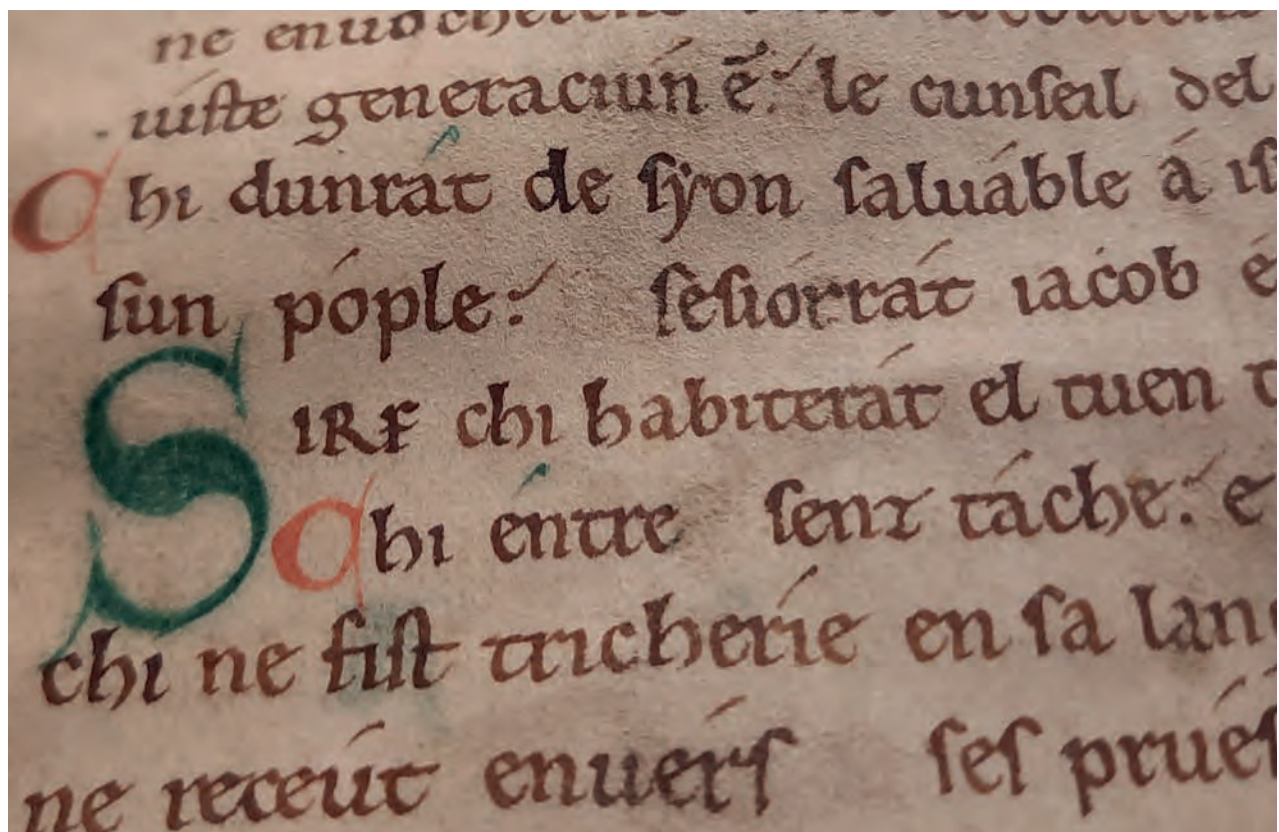 ne enuochereﬅ
. iuſte generaciún ē.́ le cunſeil del
Chi dunrát de ſyon ſaluáble á iſ
ſun póple.́ ſeſiórrát iacob é
SIRE chi habiterát el tuen t
Chi éntre ſenz táche.́ e
chi ne fiſt tricheríe en ſa lan
ne receút enuérſ ſeſ pruéſ